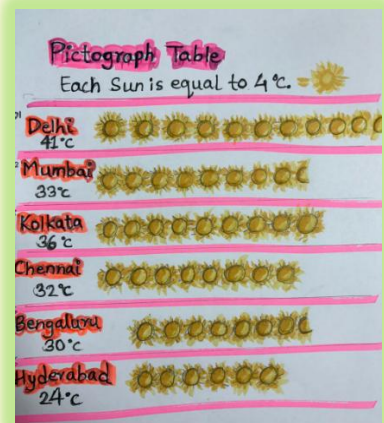 Pictograph Table
Each Sun is equal to 4°c. =
Delhi
41°c
Mumbai
33°c
Kolkata
36°c
Chennai
32°c
Bengaluru
30°c
Hyderabad
24°c